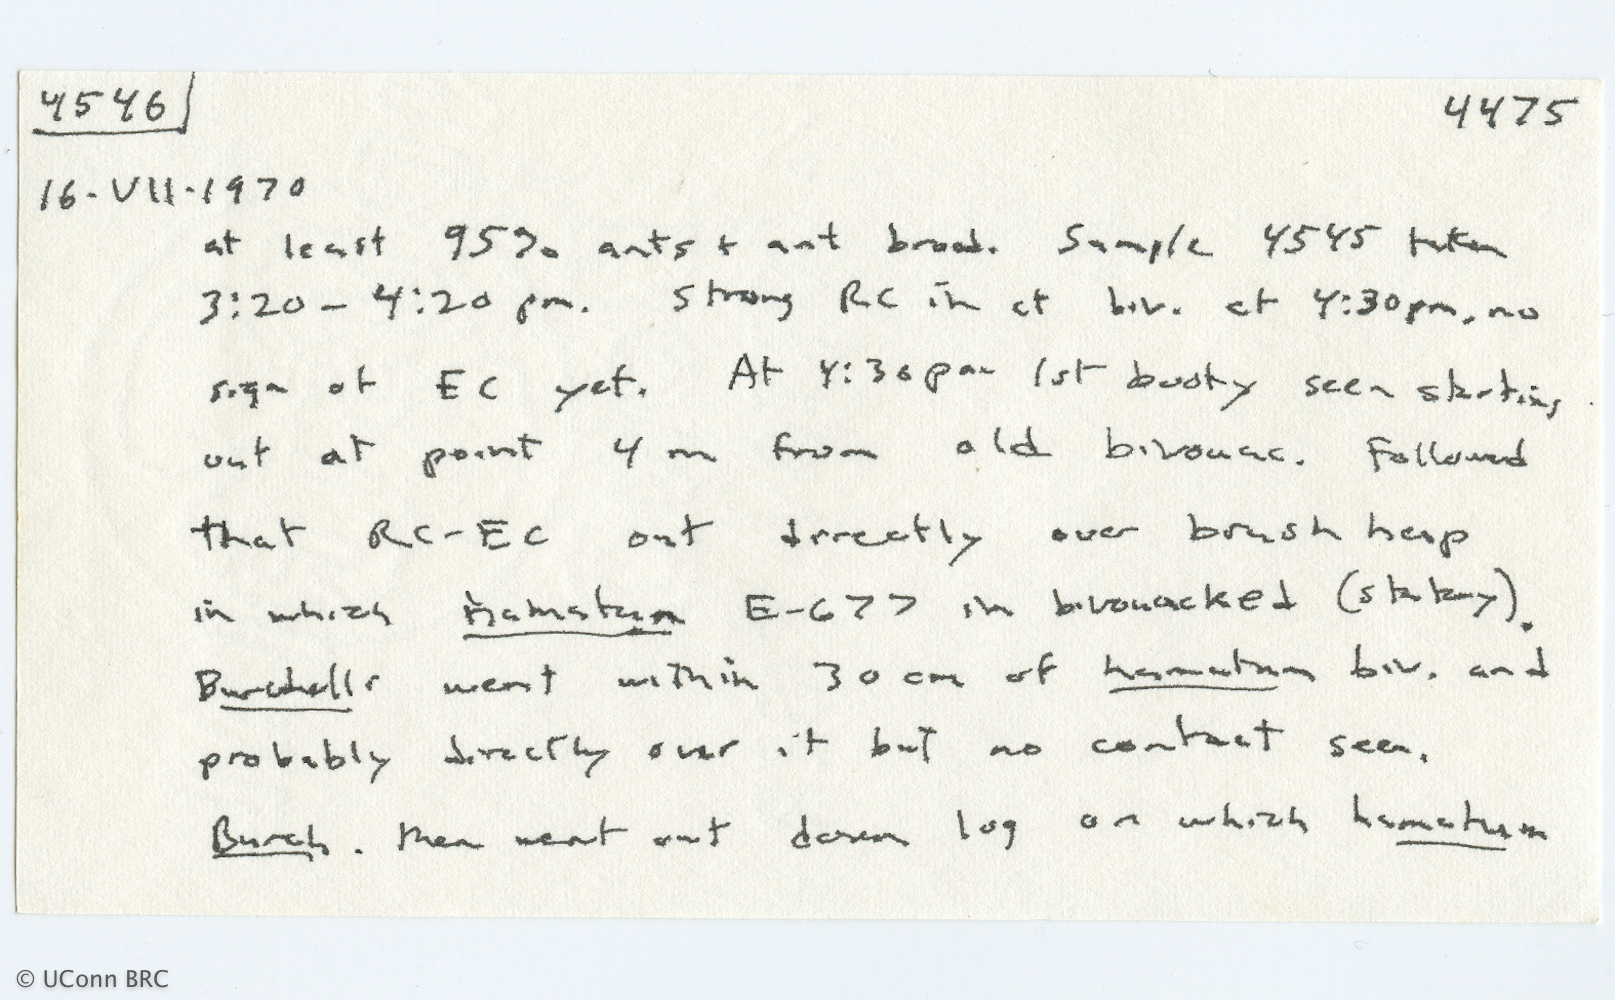 4546
4475
16-VII-1970
at least 95% ants + ant brood. Sample 4545 taken
3:20 - 4:20 pm. Strong RC in at biv. at 4:30pm, no
sign of EC yet. At 4:30pm 1st booty seen starting
out at point 4 m from old bivouac. Followed
that RC-EC out directly over brush heap
in which hamatum E-677 in bivouacked (statary).
Burchelli went within 30 cm of hamatum biv. and
probably directly over it but no contact seen.
Burch. then went out down log on which hamatum
© UConn BRC